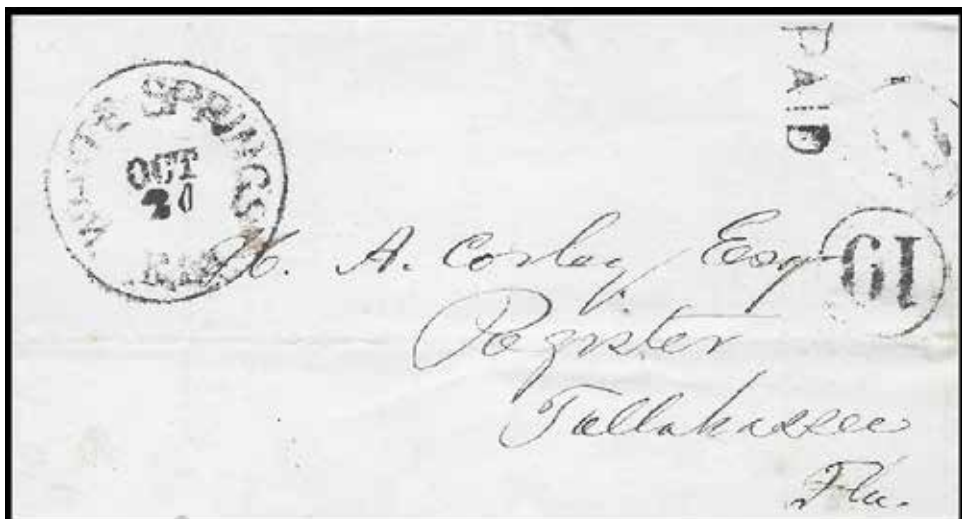 WHITE SPRINGS
OCT
PAID
H. A. Corley Esq
Register
Tallahassee
Fla.